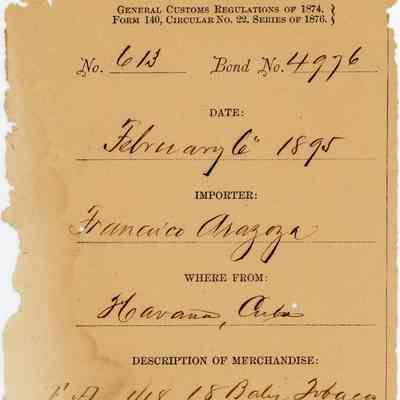 GENERAL CUSTOMS REGULATIONS OF 1874.
FORM 140, CIRCULAR NO. 22, SERIES OF 1876.
No. 613 Bond No. 4976
DATE:
February 6" 1895
IMPORTER:
Francisco Arazoza
WHERE FROM:
Havana, Cuba
DESCRIPTION OF MERCHANDISE:
18 Bales Tobacco